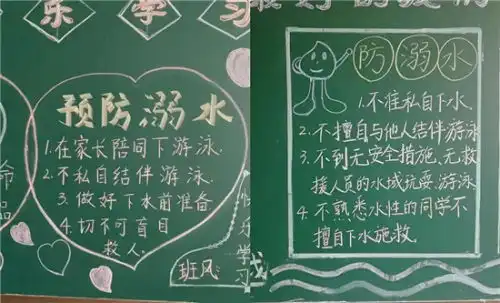 乐学习
预防溺水
1.在家长陪同下游泳.
2.不私自结伴游泳.
3.做好下水前准备
4.切不可盲目
救人.
班风
乐学习
防溺水
1.不准私自下水.
2.不擅自与他人结伴游泳
3.不到无安全措施、无救
援人员的水域玩耍、游泳
4.不熟悉水性的同学不
擅自下水施救.